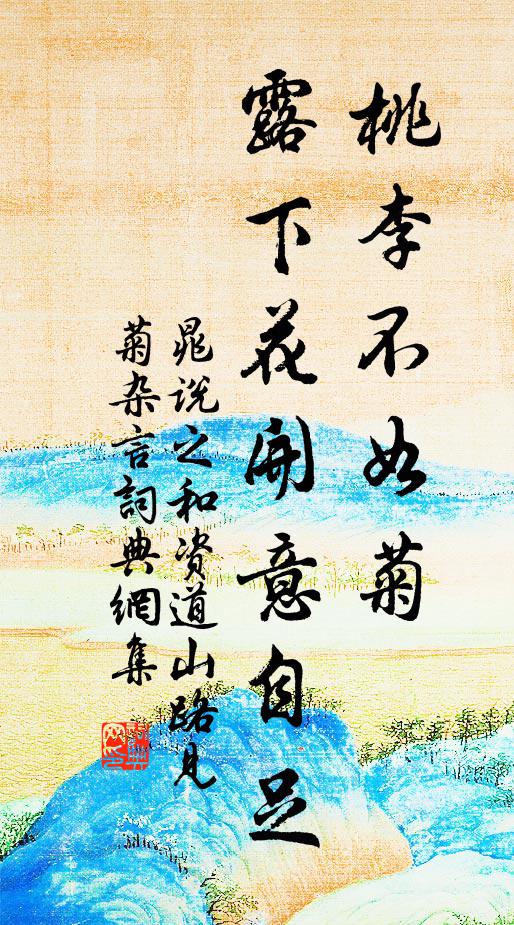 桃李不如菊
露下花開意自足
晁説之和资道山路見
菊杂言詞典網集